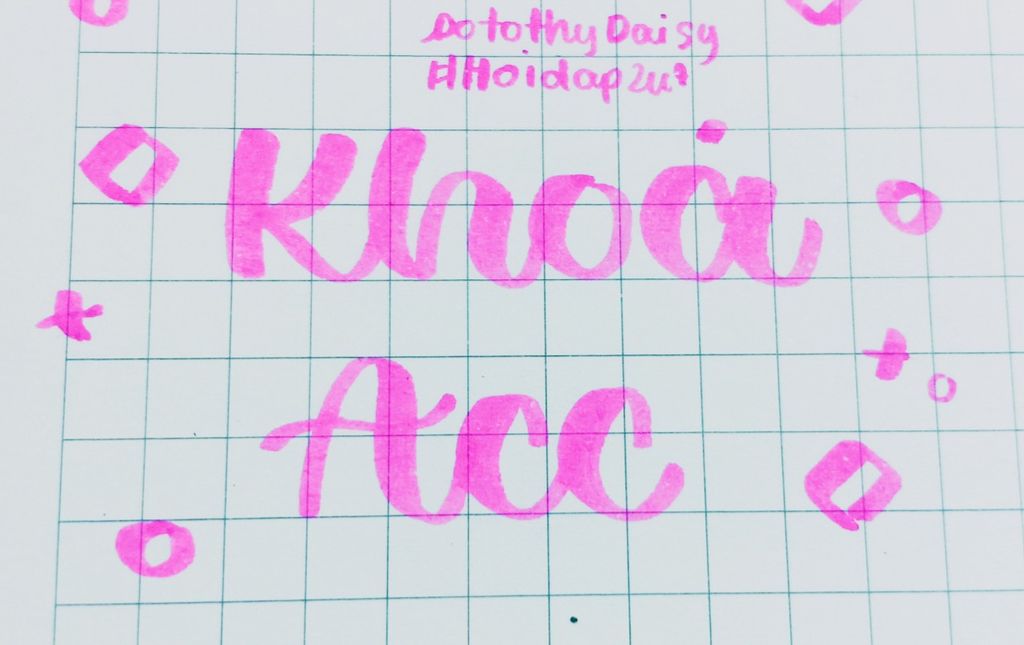 DotothyDaisy
#Hoidap247
Khoá
Acc